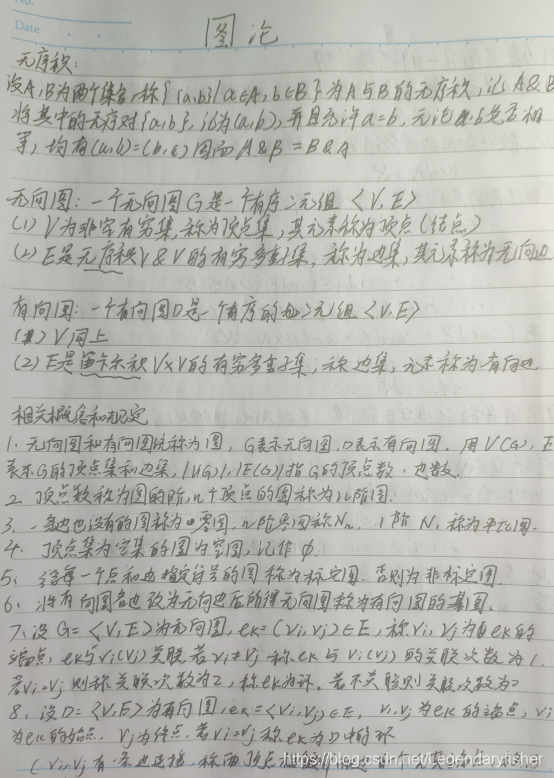 No.
Date
图论
无序积:
设A,B为两个集合,称{{a,b}|a∈A,b∈B}为A与B的无序积,记A&B
将其中的无序对{a,b},记为(a,b),并且允许a=b,无论a,b是否相
等,均有(a,b)=(b,a)因而A&B=B&A
无向图:一个无向图G是一个有序二元组<V,E>
(1) V为非空有穷集,称为顶点集,其元素称为顶点(结点)
(2) E是无序积V&V的有穷多重子集,称为边集,其元素称为无向边
有向图:一个有向图D是一个有序的二元组<V,E>
(1) V同上
(2) E是笛卡尔积V×V的有穷多重子集;称边集,元素称为有向边
相关概念和规定
1. 无向图和有向图统称为图,G表示无向图,D表示有向图,用V(G),E
表示G的顶点集和边集,|V(G)|,|E(G)|指G的顶点数,边数
2. 顶点数称为图的阶,n个顶点的图称为n阶图.
3. 一条边也没有的图称为零图,n阶零图称Nn,1阶N,称为平凡图.
4. 顶点集为空集的图为空图,记作Φ.
5. 给每一个点和边指定符号的图称为标定图,否则为非标定图.
6. 将有向图各边改为无向边后所得无向图称为有向图的基图.
7. 设G=<V,E>为无向图,ek=(vi,vj)∈E,称vi,vj为ek的
端点,ek与vi(vj)关联.若vi≠vj称ek与vi(vj)的关联次数为1.
若vi=vj则称关联次数为2,称ek为环.若不关联则关联次数为0
8. 设D=<V,E>为有向图,ek=<vi,vj>∈E,vi,vj为ek的端点,vi
为ek的始点,vj为终点,若vi=vj称ek为D中的环
(vi,vj有一条边连接,称两顶点相邻
https://blog.csdn.net/Legendaryfisher